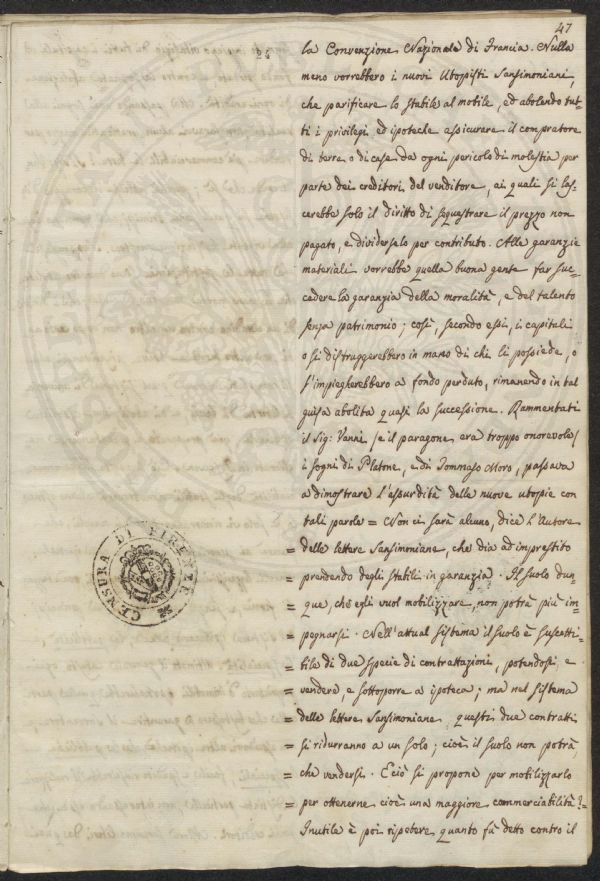 47
24
la Convenzione Nazionale di Francia. Nulla
meno vorrebbero i nuovi Utopisti Sansimoniani,
che parificare lo stabile al mobile, ed abolendo tut-
ti i privilegi ed ipoteche assicurare il compratore
di terra o di case da ogni pericolo di molestia per
parte dei creditori del venditore, ai quali si las-
cerebbe solo il diritto di sequestrare il prezzo non
pagato, e dividerselo per contributo. Alle garanzie
materiali vorrebbe quella buona gente far suc-
cedere la garanzia della moralità, e del talento
senza patrimonio; così, secondo essi, i capitali
o si distruggerebbero in mano di chi li possiede, o
s'impiegherebbero a fondo perduto, rimanendo in tal
guisa abolita quasi la successione. Rammentati
il Sig: Vanni /e il paragone era troppo onorevole/
i sogni di Platone, e di Tommaso Moro, passava
a dimostrare l'assurdità delle nuove utopie con
tali parole = Non ci sarà alcuno, dice l'Autore
= delle lettere Sansimoniane, che dia ad imprestito
= prendendo degli stabili in garanzia. Il suolo dun-
= que, che egli vuol mobilizzare, non potrà più im-
= pegnarsi. Nell'attual sistema il suolo è suscetti-
= bile di due specie di contrattazioni, potendosi, e
= vendere, e sottoporre a ipoteca; ma nel sistema
= delle lettere Sansimoniane questi due contratti
= si ridurranno a un solo; cioè il suolo non potrà
= che vendersi. E ciò si propone per mobilizzarlo
= per ottenerne cioè una maggiore commerciabilità? =
Inutile è poi ripetere quanto fù detto contro il
CENSURA DI FIRENZE